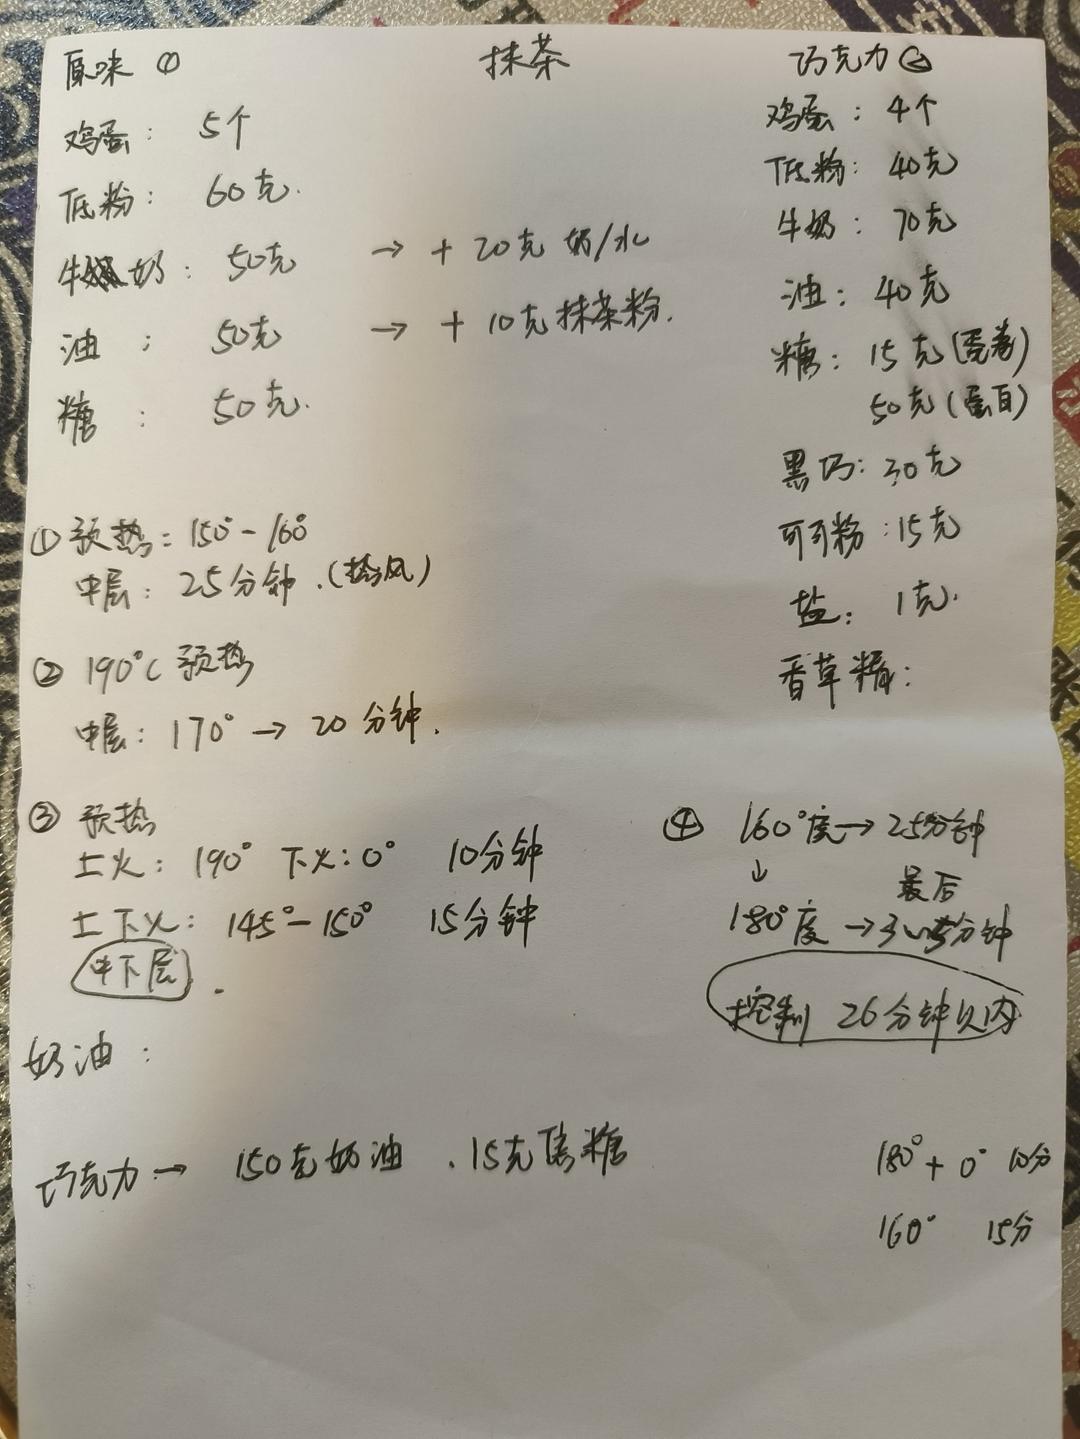 原味 ①
鸡蛋: 5个
低粉: 60克.
牛奶: 50克 → + 20克 奶/水
油: 50克 → + 10克抹茶粉.
糖: 50克.
抹茶
巧克力 ②
鸡蛋: 4个
低粉: 40克
牛奶: 70克
油: 40克
糖: 15克(蛋卷)
50克(蛋白)
黑巧: 30克
可可粉: 15克
盐: 1克.
香草精:
① 预热: 150°-160°
中层: 25分钟.(热风)
② 190°C 预热
中层: 170° → 20分钟.
③ 预热
上火: 190° 下火: 0° 10分钟
上下火: 145°-150° 15分钟
中下层.
④ 160°度 → 25分钟
↓ 最后
180°度 → 分钟
控制 26分钟以内
奶油:
巧克力 → 150克奶油 .15克 糖
180° + 0° 10分
160° 15分